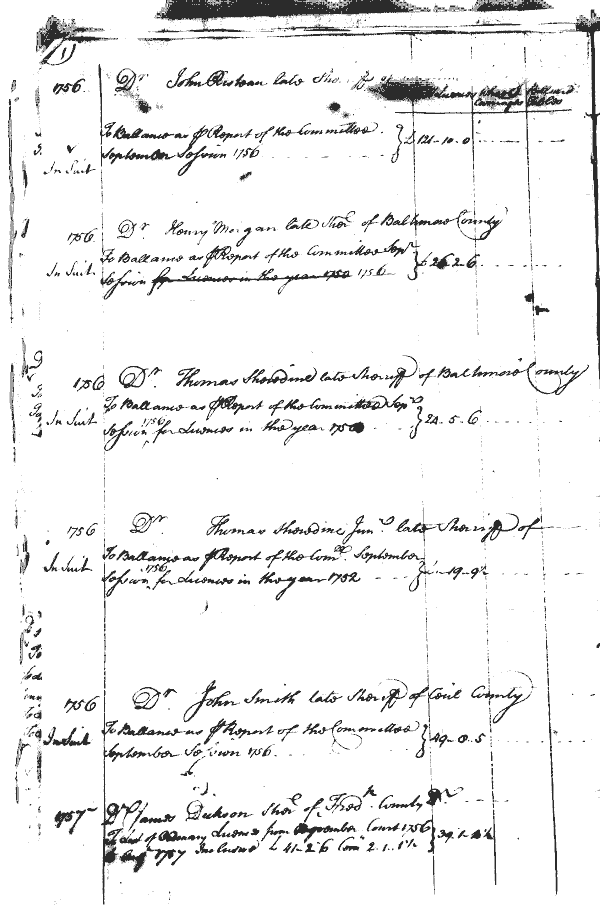 1
1756 Dr John Risteau late Sheriff of
Licences Wheel Carriages Billiard Tables
To Ballance as ⅌ Report of the Committee
In Suit September Session 1756 } £ 121-10-0
1756 Dr Henry Morgan late Sherf of Baltimore County
To Ballance as ⅌ Report of the Committee Sepr
In Suit Session for Licences in the year 1750 1756 } £ 26-2-6
1756 Dr Thomas Sheredine late Sheriff of Baltimore County
To Ballance as ⅌ Report of the Committee Sepr
In Suit Session 1756 for Licences in the year } 24-5-6
1756 Dr Thomas Sheredine Junr late Sherriff of
To Ballance as ⅌ Report of the Comee September
In Suit Session 1756 for Licences in the year 1752 } 19-9
1756 Dr John Smith late Sheriff of Cecil County
To Ballance as ⅌ Report of the Committee
In Suit September Session 1756 } 49-0-5
1757 Dr James Dickson Sherf of Fredk County Dr
To List of Ordinary Licences from November Court 1756
to Augt 1757 Inclusive 41-2-6 Com 2-1-1½ } 39-1-4½